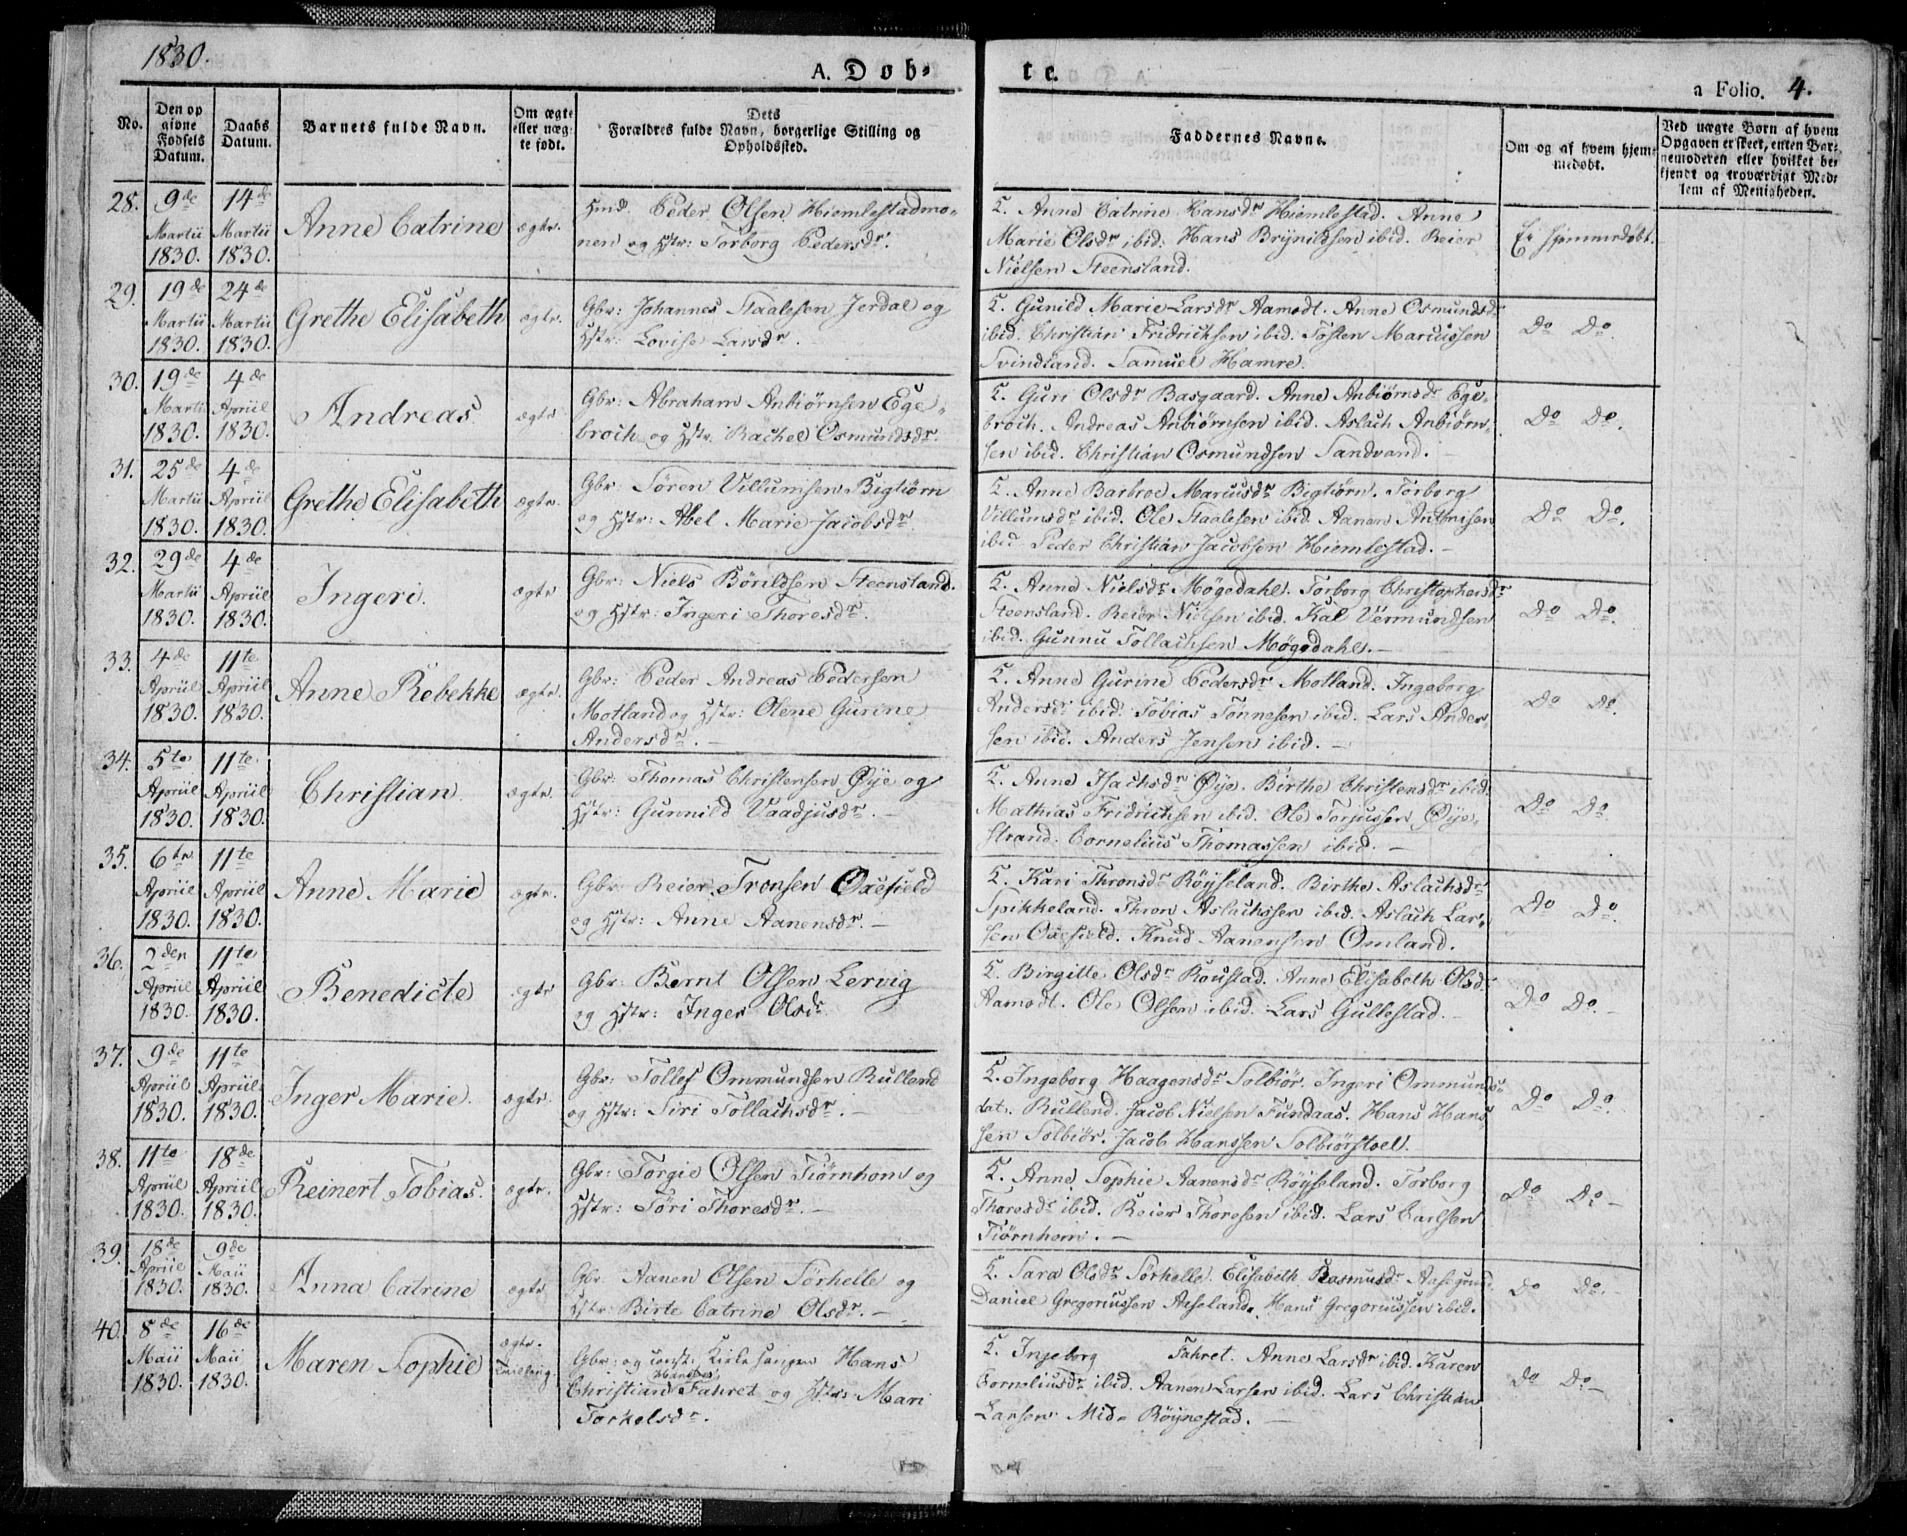 1830.
A. Døb-
te.
a Folio. 4.
No.
Den op
givne
Fødsels
Datum.
Daabs
Datum.
Barnets fulde Navn.
Om ægte
eller uæg-
te født.
Dets
Forældres fulde Navn, borgerlige Stilling og
Opholdssted.
Faddernes Navne.
Om og af hvem hjem-
medøbt.
Ved uægte Børn af hvem
Opgaven er skeet, enten Bar-
nemoderen eller hvilket be-
kjendt og troværdigt Med-
lem af Menigheden.
28. 9de Martii 1830. 14de Martii 1830. Anne Catrine ægte.
Hmd. Peder Olsen Hiemlestadmo-
nen og Hstr: Torborg Pedersdr.
T. Anne Catrine Hansdr Hiemlestad. Anne
Marie Olsdr ibid. Hans Brynildsen ibid. Reier
Nielsen Steensland.
Ei hjemmedøbt.
29. 19de Martii 1830. 24de Martii 1830. Grethe Elisabeth ægte.
Gbr: Johannes Staalesen Jerdal og
Hstr: Lovise Larsdr.
T. Gunild Marie Larsdr Aamodt. Anne Osmundsdr
ibid. Christian Fridrichsen ibid. Tosten Marcussen
Svindland. Samuel Hamre.
Do Do.
30. 19de Martii 1830. 4de Apriil 1830. Andreas ægte
Gbr: Abraham Anbiørnsen Ege-
broch og Hstr. Rachel Osmundsdr.
T. Guri Olsdr Basgaard. Anne Anbiørnsdr Ege-
broch. Andreas Anbiørnsen ibid. Aslach Anbiørn-
sen ibid. Christian Osmundsen Sandvand.
Do Do.
31. 25de Martii 1830. 4de Apriil 1830. Grethe Elisabeth ægte.
Gbr: Søren Villumsen Bigtiørn
og Hstr: Abel Marie Jacobsdr.
T. Anne Barbroe Marcusdr Bigtiørn. Torborg
Villumsdr ibid. Ole Staalesen ibid. Aanen Antonisen
ibid. Peder Christian Jacobsen Hiemlestad.
Do Do.
32. 29de Martii 1830. 4de Apriil 1830. Ingeri. ægte
Gbr: Niels Børildsen Steensland.
og Hstr: Ingeri Thoresdr.
T. Anne Nielsdr Møgedahl. Torborg Christophersdr
Steensland. Reier Nielsen ibid. Kal Vermundsen
ibid. Gunnu Tollachsen Møgedahl.
Do Do.
33. 4de Apriil 1830. 11te Apriil 1830. Anne Rebekke ægte.
Gbr: Peder Andreas Pedersen
Motland og Hstr: Olene Gurine
Andersdr.
T. Anne Gurine Pedersdr Motland. Ingeborg
Andersdr ibid. Tobias Tønnesen ibid. Lars Ander
sen ibid. Anders Jensen ibid.
Do Do.
34. 5te Apriil 1830. 11te Apriil 1830. Christian ægte.
Gbr: Thomas Christensen Øye og
Hstr: Gunnild Vaadjusdr.
T. Anne Isachsdr Øye. Birthe Christensdr ibid.
Mathias Fridrichsen ibid. Ole Torjussen Øye-
strand. Cornelius Thomassen ibid.
Do Do.
35. 6te Apriil 1830. 11te Apriil 1830. Anne Marie ægte.
Gbr: Reier Tronsen Qvefield
og Hstr: Anne Aanensdr.
T. Kari Thronsdr Røyseland. Birthe Aslachsdr
Spikkeland. Thron Aslachssen ibid. Aslach Lar-
sen Qvefield. Knud Aanensen Omland.
Do Do.
36. 2den Apriil 1830. 11te Apriil 1830. Benedicte ægte
Gbr: Bernt Olsen Lervig
og Hstr: Inger Olsdr.
T. Birgitte Olsdr Roustad. Anne Elisabeth Olsdr
Aamodt. Ole Olsen ibid. Lars Gullestad.
Do Do.
37. 9de Apriil 1830. 11te Apriil 1830. Inger Marie. ægte.
Gbr: Tollef Ommundsen Rulland
og Hstr: Siri Tollachsdr.
T. Ingeborg Haagensdr Solbiør. Ingeri Ommunds-
dat. Rullend. Jacob Nielsen Fundaas. Hans Hans-
sen Solbiør. Jacob Hanssen Solbiørstoel.
Do Do.
38. 11te Apriil 1830. 18de Apriil 1830. Reinert Tobias. ægte.
Gbr: Torgie Olsen Tiørnhom og
Hstr: Tøri Thoresdr.
T. Anne Sophie Aanensdr Røyseland. Torborg
Thoresdr ibid. Reier Thoresen ibid. Lars Carlsen
Tiørnhom.
Do Do.
39. 18de Apriil 1830. 9de Maii 1830. Anna Catrine ægte
Gbr. Aanen Olsen Sørhelle og
Hstr: Birte Catrine Olsdr.
T. Sara Olsdr Sørhelle. Elisabeth Rasmusdr
Daniel Gregoriussen Aaseland. Hans Gregoriussen ibid.
Do Do.
40. 8de Maii 1830. 16de Maii 1830. Maren Sophie ægte. Tvilling
Gbr: og const: Kirkesanger Hans
Christian Hansen Fahret og Hstr: Mari
Torkelsdr.
T. Ingeborg Fahret. Anne Larsdr ibid. Karen
Corneliusdr ibid. Aanen Larsen ibid. Lars Christian
Larsen Mid-Røynestad.
Do Do